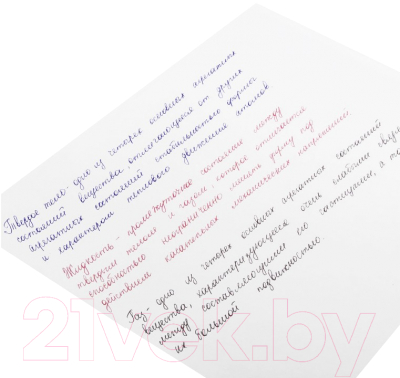 Твердое тело - одно из четырех основных агрегатных
состояний вещества, отличающееся от других
агрегатных состояний стабильностью формы
и характером теплового движения атомов
Жидкость - промежуточное состояние между
твердым телом и газом, которое отличается
способностью неограниченно менять форму под
действием касательных механических напряжений
Газ - одно из четырех основных агрегатных состояний
вещества, характеризующееся очень слабыми связями
между составляющими его частицами, а так
их большой подвижностью.
21vek.by